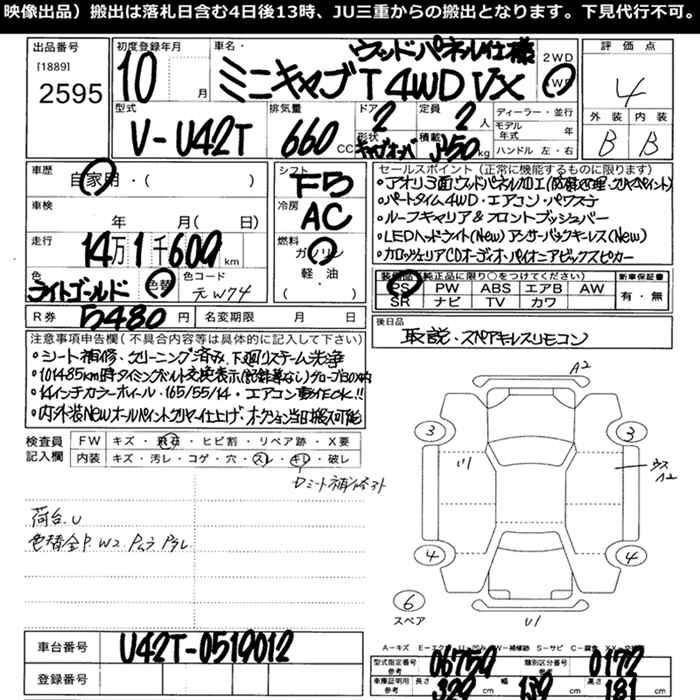 映像出品）搬出は落札日含む4日後13時、JU三重からの搬出となります。下見代行不可。
出品番号
[1889]
2595
初度登録年月
10 月
車名・
ウッドパネル仕様
ミニキャブT 4WD VX
2WD
4WD
評価点
4
外装 内装
B B
型式
V-U42T
排気量
660 CC
ドア 2
形状 キャブオーバ
定員 2 人
積載 350 kg
ディーラー・並行
モデル年式 年
ハンドル 左・右
車歴
自家用・( )
車検
年 月( 日)
走行
14万1千600 km
色
ライトゴールド
色替
色コード
元W74
シフト
F5
冷房
AC
燃料
ガソリン
軽油
( )
セールスポイント（正常に機能するものに限ります）
・アオリ3面ウッドパネル加工(防腐処理、クリヤペイント)
・パートタイム4WD・エアコン・パワステ
・ルーフキャリア&フロントプッシュバー
・LEDヘッドライト(New) アンサーバックキーレス(New)
・カロッツェリアCDオーディオ・パイオニアボックススピカー
装備品(純正品に限り○をつけてください)
PS PW AB エアB AW
SR ナビ TV カワ
新車保証書
有・無
R券 5480 円
名変期限 月 日
後日品
取説・スペアキーレスリモコン
注意事項申告欄(不具合内容等は具体的に記入して下さい)
・シート補修・クリーニング済み、下廻りスチーム洗浄
・101485km時タイミングベルト交換表示(記録簿なし)
・14インチカラーホイール・165/55/14・エアコン動作OK!!
・内外装Newオールペイントクリヤー仕上げ・オークション当日搬入可能
検査員
記入欄
FW キズ・飛石・ヒビ割・リペア跡・X要
内装 キズ・汚レ・コゲ・穴・スレ・キレ・破レ
荷台.U
色替全P. W2 Pムラ Pタレ
A2
3
3
U1
ウス
A2
4
4
6
スペア
U1
車台番号 U42T-0519012
登録番号
型式指定番号
参考
06759
類別区分番号
参考
0177
車庫証明用
参考
長さ 329 cm
幅 139 cm
高さ 181 cm